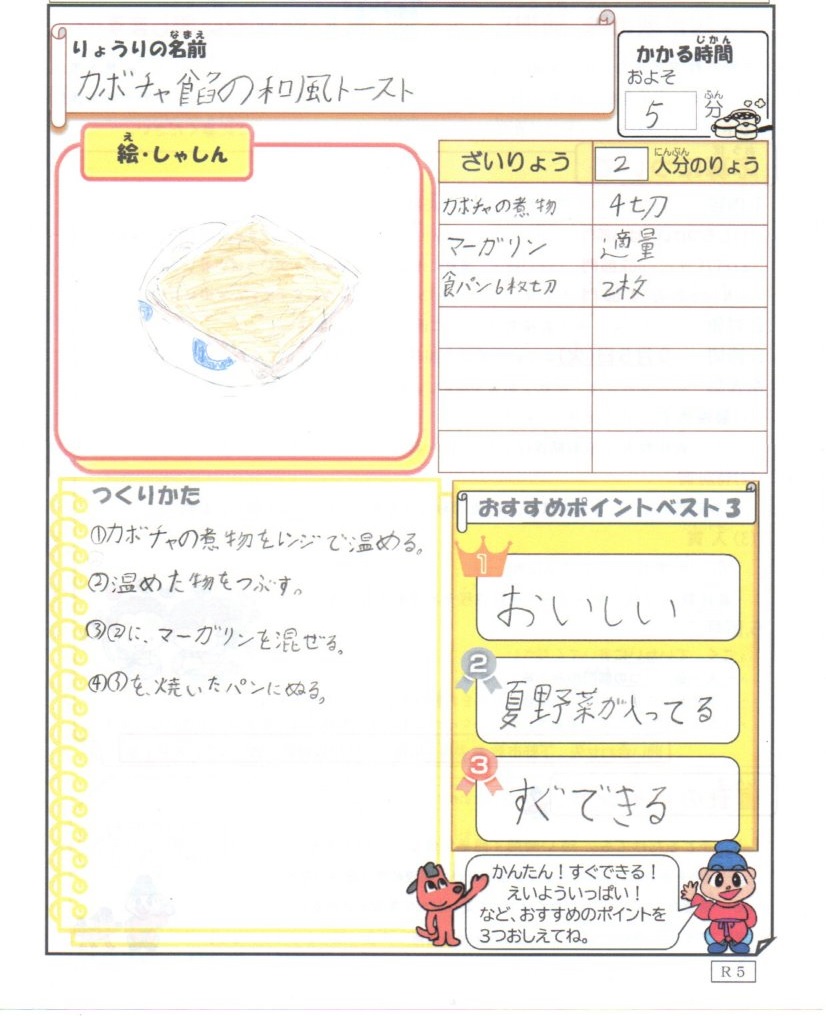 りょうりの名前
なまえ
カボチャ餡の和風トースト
かかる時間
じかん
およそ
5 分
ふん
絵・しゃしん
え
ざいりょう 2 人分のりょう
にんぶん
カボチャの煮物 4切
マーガリン 適量
食パン6枚切 2枚
つくりかた
①カボチャの煮物をレンジで温める。
②温めた物をつぶす。
③②に、マーガリンを混ぜる。
④③を、焼いたパンにぬる。
おすすめポイントベスト3
1
おいしい
2
夏野菜が入ってる
3
すぐできる
かんたん!すぐできる!
えいよういっぱい!
など、おすすめのポイントを
3つおしえてね。
R5